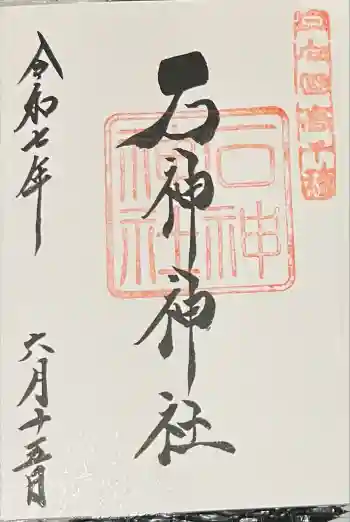 石神神社
令和七年
六月十五日
石神
神社